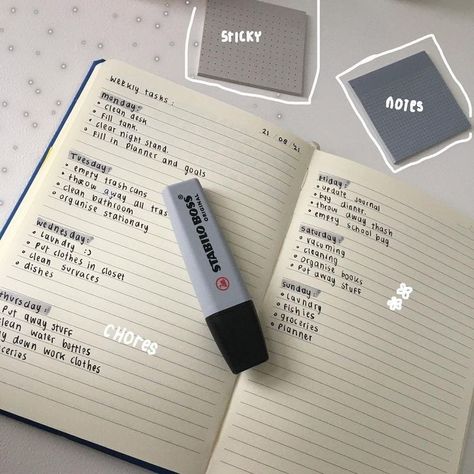 STICKY
NOTES
weekly tasks:
21 08 '21
monday:
• clean desk
• fill tank.
• clear night stand.
• fill in planner and goals
Tuesday:
• empty trash cans
• throw away all tras
• clean bathroom
• organise stationary
wednesday:
• laundry :)
• put clothes in closet
• clean survaces
• dishes
thursday:
put away stuff
clean water bottles
down work clothes
friday:
• update journal
• buy dinner
• throw away trash
• empty school bag
saturday:
• vacuming
• cleaning
• organise books
• put away stuff
sunday:
• laundry
• fishies
• groceries
• planner
STABILO BOSS
ORIGINAL
chores